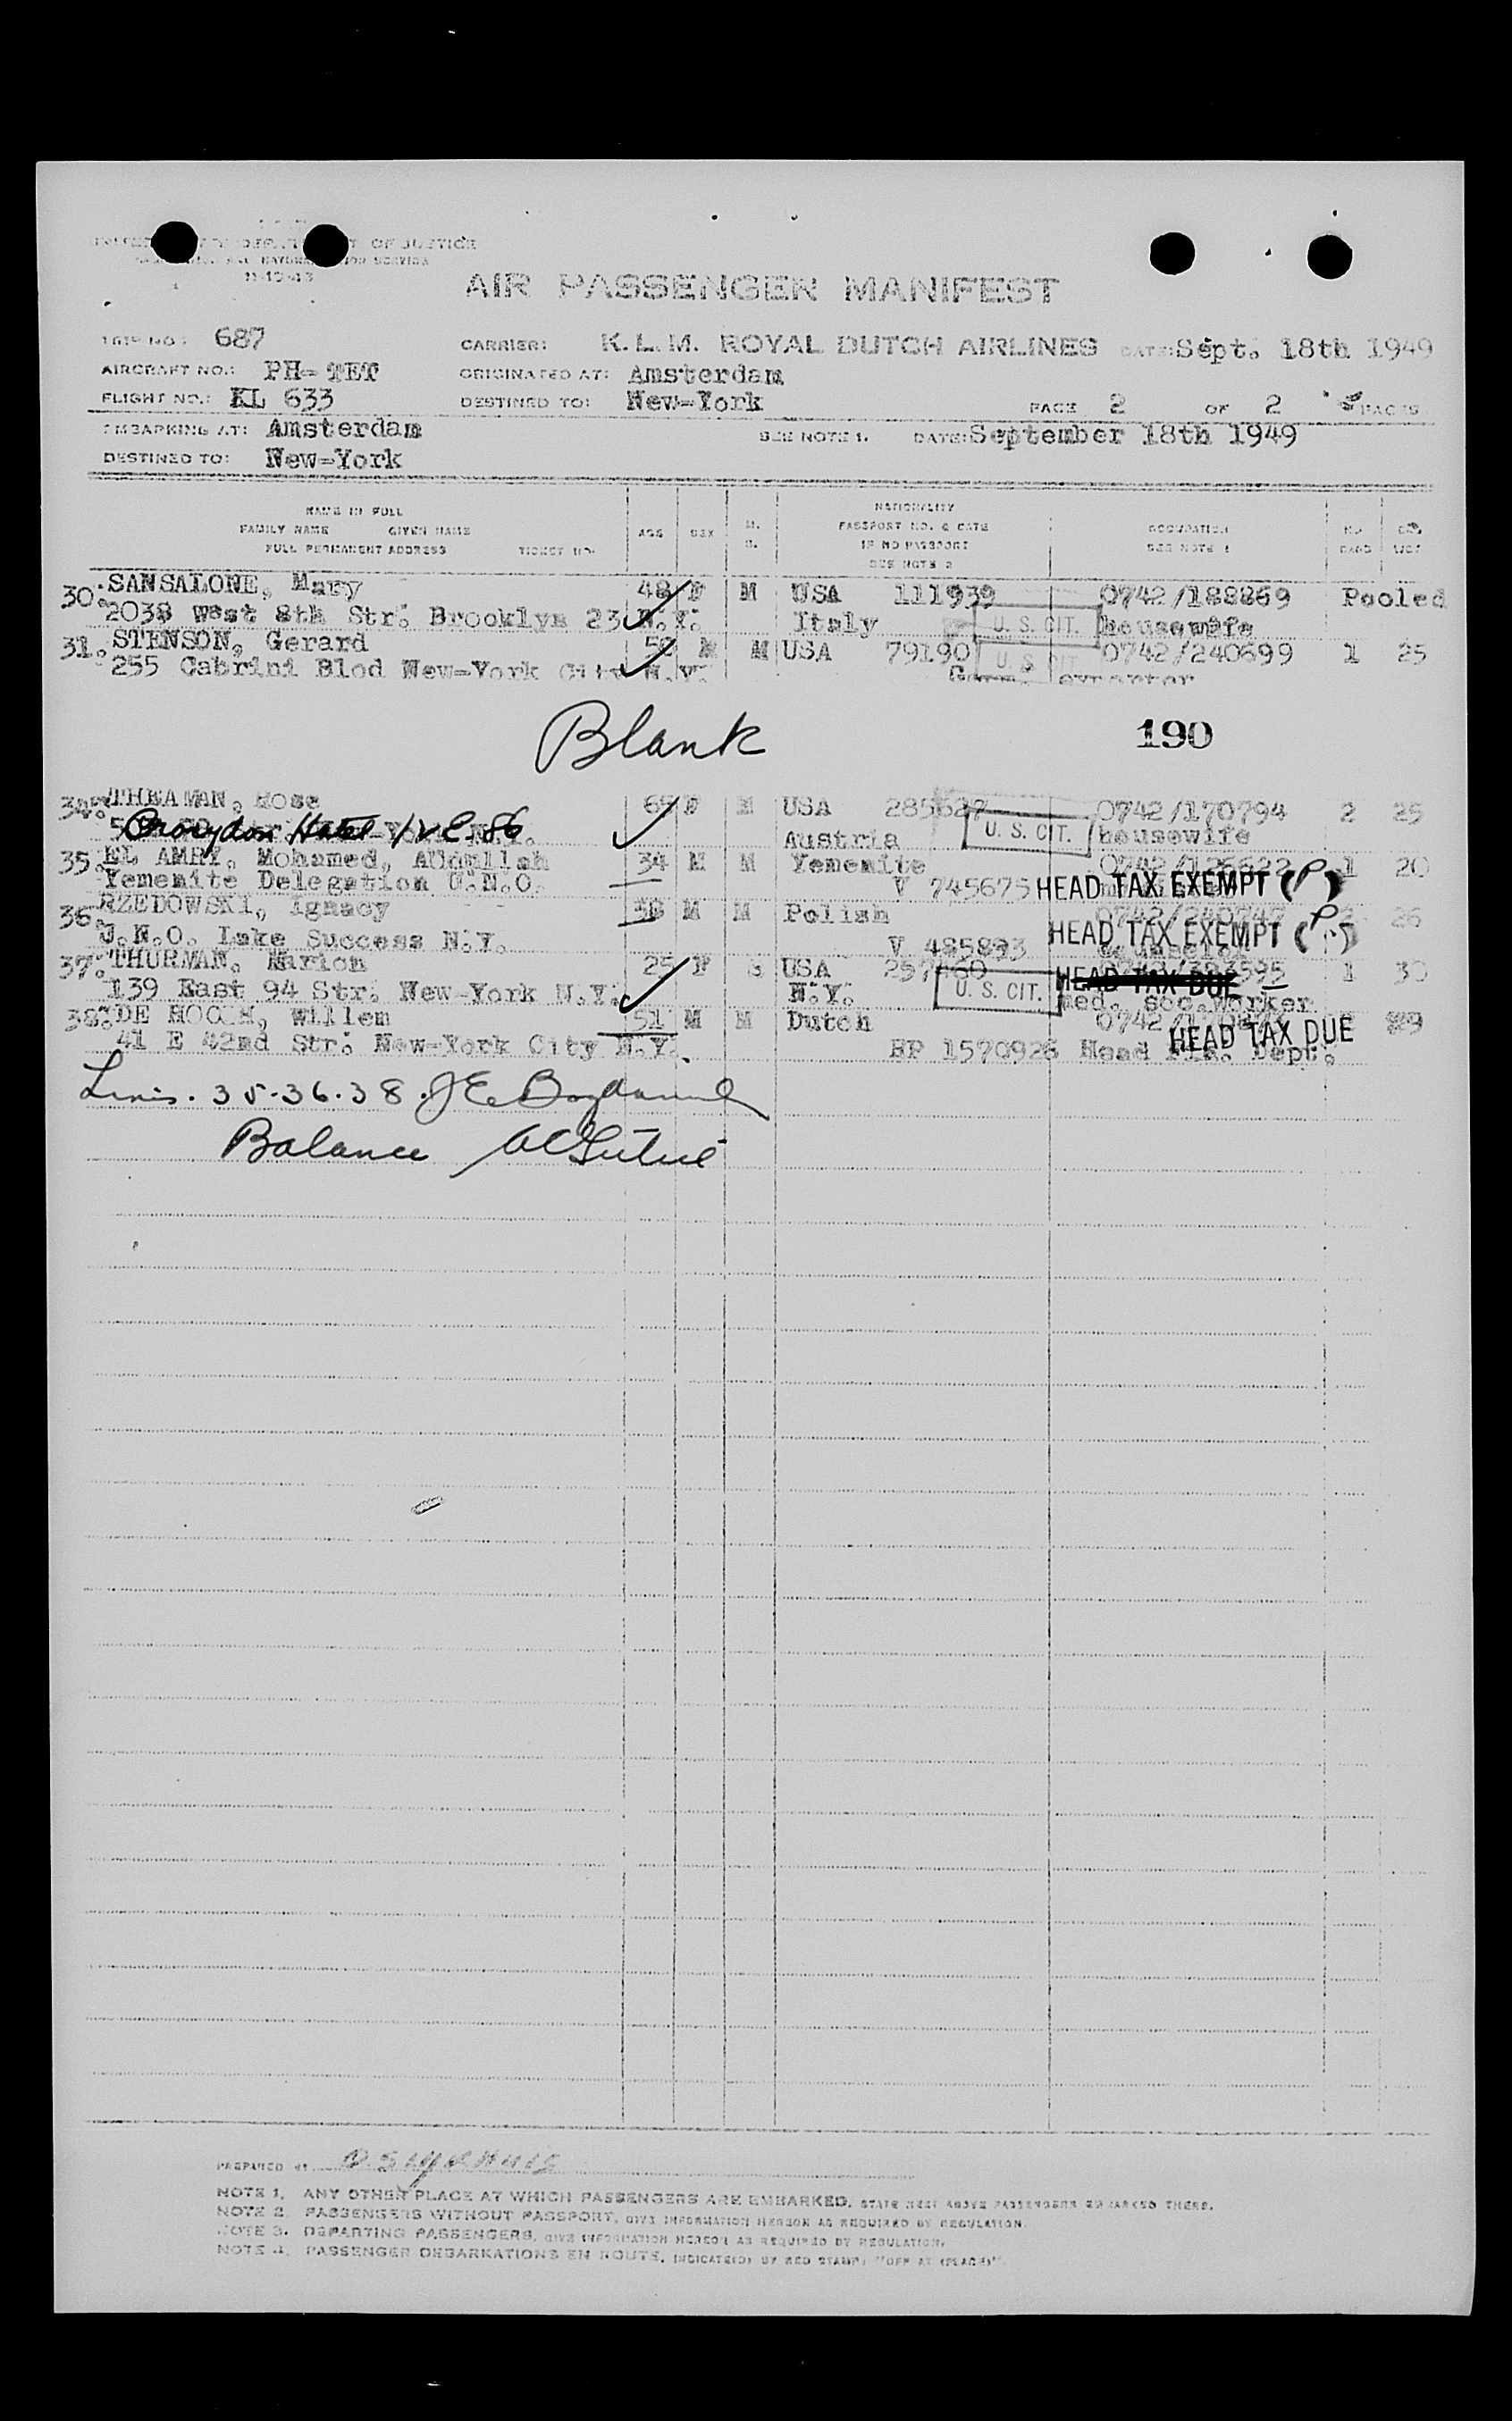 OF JUSTICE
11-10-43
AIR PASSENGER MANIFEST
TRIP NO.: 687
CARRIER: K.L.M. ROYAL DUTCH AIRLINES
DATE: Sept. 18th 1949
AIRCRAFT NO.: PH-TET
ORIGINATED AT: Amsterdam
FLIGHT NO.: KL 633
DESTINED TO: New-York
PAGE 2 OF 2 PAGES
EMBARKING AT: Amsterdam
SEE NOTE 1. DATE: September 18th 1949
DESTINED TO: New-York
NAME IN FULL
FAMILY NAME GIVEN NAME
FULL PERMANENT ADDRESS TICKET NO.
AGE SEX
NATIONALITY
PASSPORT NO. & DATE
IF NO PASSPORT
SEE NOTE 2
OCCUPATION
SEE NOTE 1
30. SANSALONE, Mary 48 F M USA 111939 0742/188869 Pooled
2038 West 8th Str. Brooklyn 23 N.Y. Italy U. S. CIT. housewife
31. STENSON, Gerard M M USA 79190 0742/240699 1 25
255 Cabrini Blod New-York City N.Y. U. S. CIT.
Blank
190
34. THEAMAN, Rose 65 F M USA 285627 0742/170794 2 25
Croydon Hotel 12 E. 86 Austria U. S. CIT. housewife
35. EL AMRY, Mohamed, Abdullah 34 M M Yemenite 0742/126622 1 20
Yemenite Delegation U.N.O. V 745675 HEAD TAX EXEMPT (P)
36. RZEDOWSKI, Ignacy 38 M M Polish 0742/240747 26
U.N.O. Lake Success N.Y. V 485893 HEAD TAX EXEMPT (P) counselor
37. THURMAN, Marion 25 F S USA 257460 HEAD TAX DUE 1 30
139 East 94 Str. New-York N.Y. N.Y. U. S. CIT. med. soc. worker
38. DE HOOGH, Willem 51 M M Dutch 29
41 E 42nd Str. New-York City N.Y. HP 1570926 Head Dept. HEAD TAX DUE
Lines. 35-36-38.
Balance
PREPARED BY
NOTE 1. ANY OTHER PLACE AT WHICH PASSENGERS ARE EMBARKED, STATE NEXT ABOVE PASSENGERS EMBARKED THERE.
NOTE 2. PASSENGERS WITHOUT PASSPORT, GIVE INFORMATION HEREON AS REQUIRED BY REGULATION.
NOTE 3. DEPARTING PASSENGERS, GIVE INFORMATION HEREON AS REQUIRED BY REGULATION.
NOTE 4. PASSENGER DEBARKATIONS EN ROUTE, INDICATE(D) BY RED STAMP: "OFF AT (PLACE)".